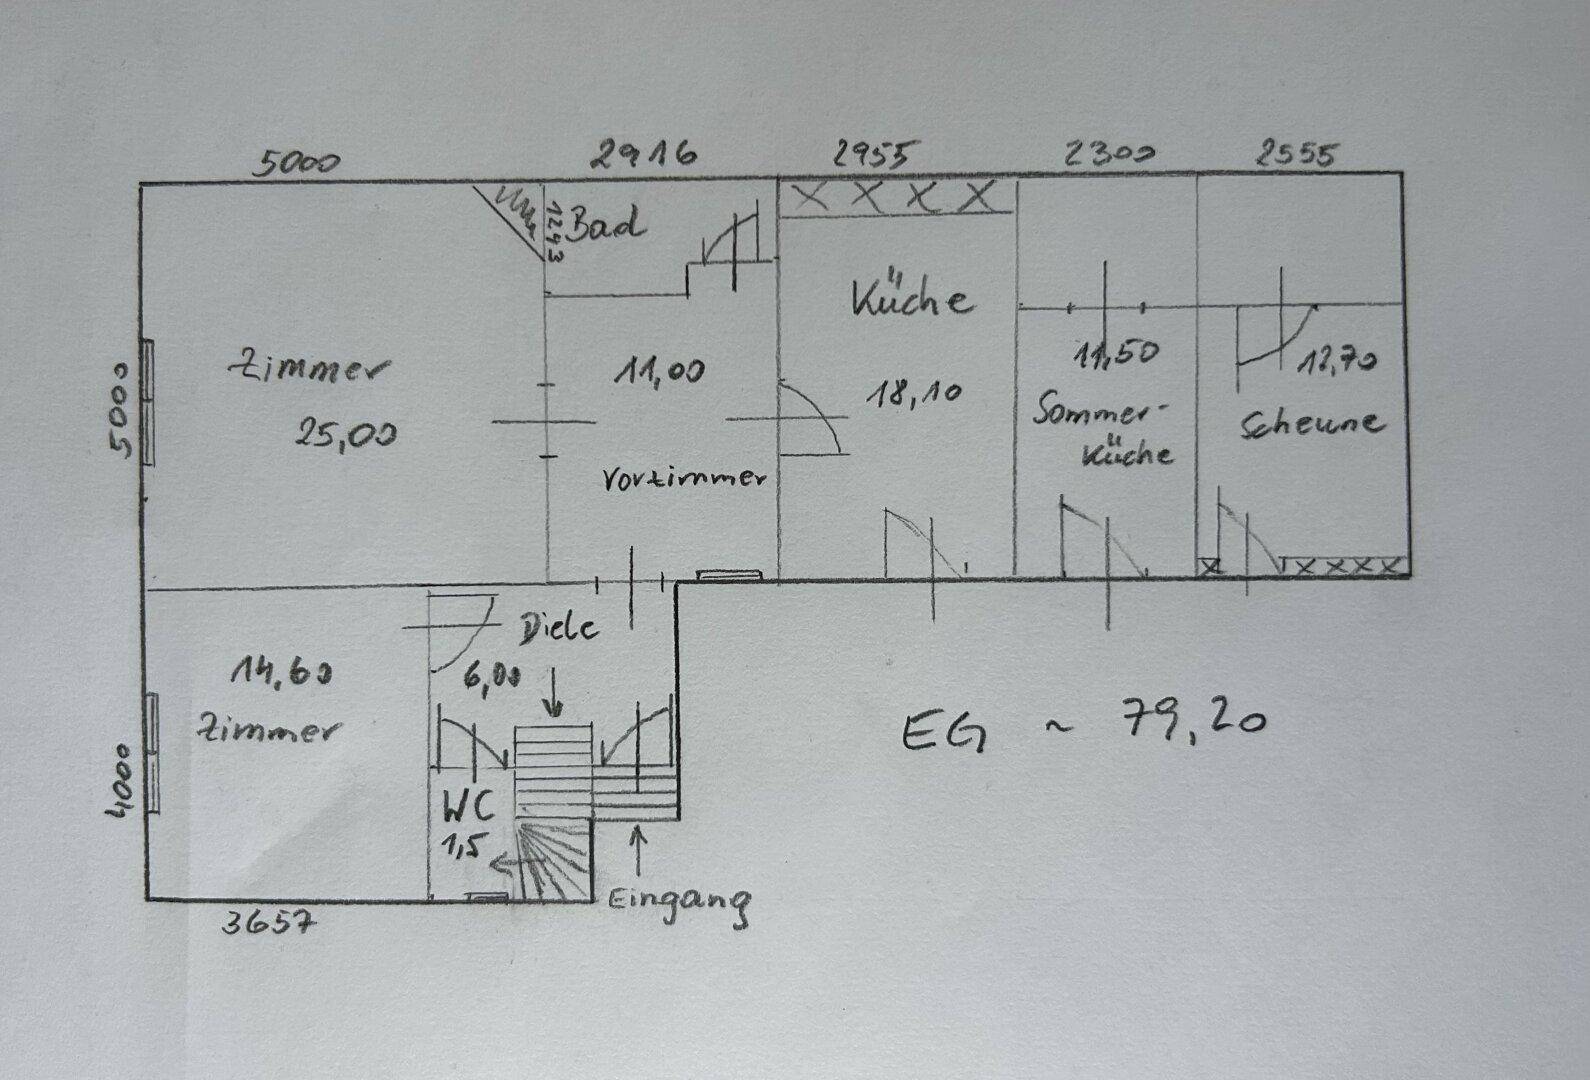 5000
2916
2955
2300
2555
1243
Bad
Küche
Zimmer
25,00
11,00
18,10
11,50
12,70
Sommer-
Küche
Scheune
Vorzimmer
5000
Diele
6,00
14,60
Zimmer
EG ~ 79,20
4000
WC
1,5
Eingang
3657